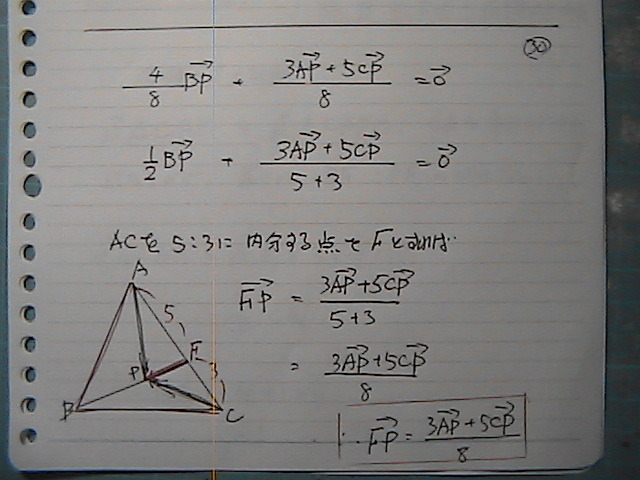 ㉚
4/8 BP→ + (3AP→ + 5CP→)/8 = 0→
1/2 BP→ + (3AP→ + 5CP→)/(5+3) = 0→
ACを5:3に内分する点をFとすれば
FP→ = (3AP→+5CP→)/(5+3)
= (3AP→+5CP→)/8
∴ FP→ = (3AP→+5CP→)/8
A
5
F
3
P
B
C